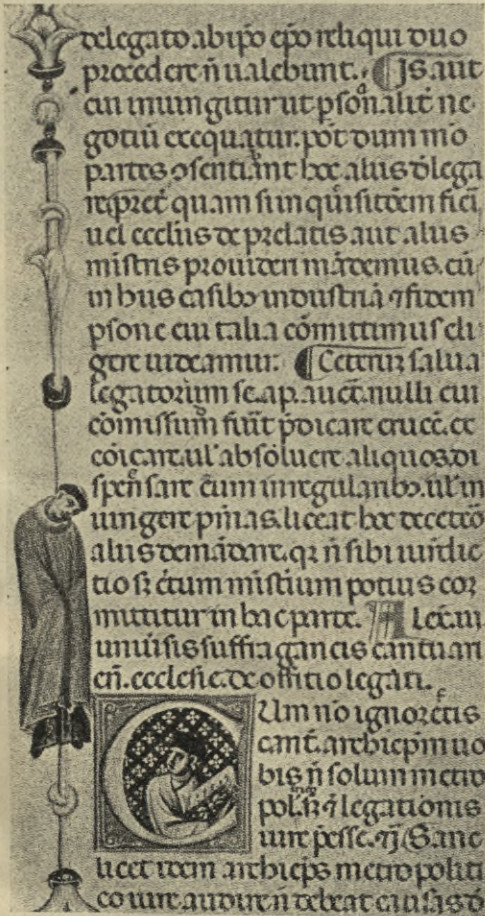 delegato ab ip̄o ep̄o reliqui duo
procedere ñ ualebunt. ¶ Is aut̄
cui iniungitur ut ꝑsonalit̄ ne
gotiū exequatur. pōt dum mō
partes ↄsentiant hoc aliis delega
re p̄ret̄ quam si inquisitōem fieri
uel eccl̄iis de prelatis aut aliis
mistris prouideri mādemus. cū
in hiis casibꝰ industriā ⁊ fidem
ꝑsone cui talia cōmittimus eli
gere uideamur. ¶ Ceterum salua
legatorum se. ap. auct̄. nulli cui
cōmissum fuit p̄dicare cruc̄. ex
cōicare. ul' absoluere aliquos. di
spensare cum irregularibꝰ. ul' in
iungere pnīas. liceat hoc de cetero
aliis demādare. qꝛ ñ sibi iurisdic
tio sꝫ c̄tum misterium potius com
mittitur in hac parte. Alex. iii
uniu̇sis suffraganeis cantuari
en̄. ecclesie. de officio legati.
Cum nō ignoretis
cant̄. archiep̄m uo
bis ñ solum metro
pol. sꝫ ⁊ legationis
iure p̄esse. ⁊j. Sane
licet idem archiep̄s metropoliti
co iure audire ñ debeat causas d̄